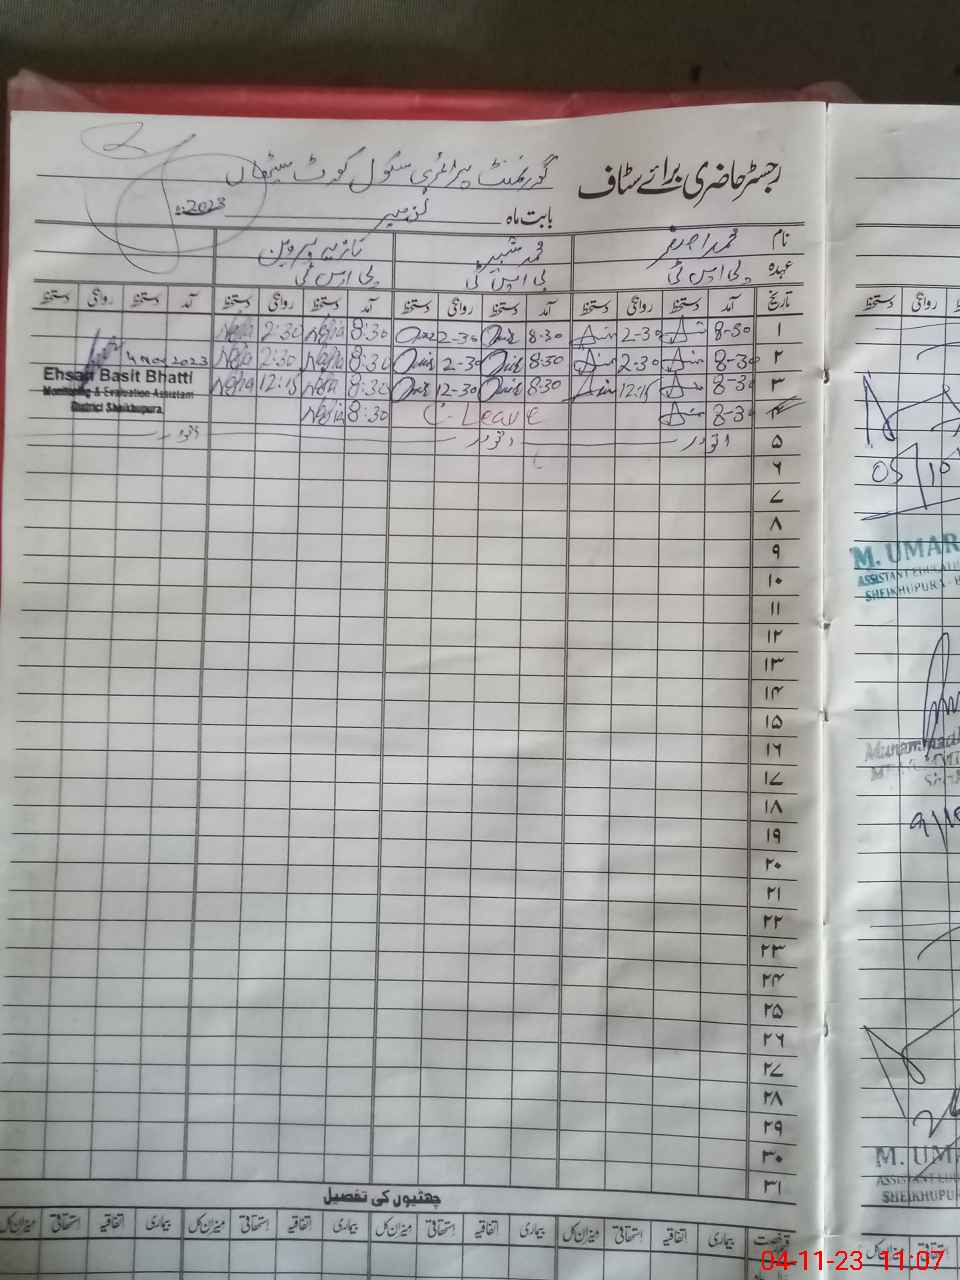 رجسٹر حاضری برائے سٹاف گورنمنٹ پرائمری سکول کوٹ سیٹھاں
بابت ماہ نومبر 2023
نام محمد اصغر محمد شبیر نازیہ پروین
عہدہ پی ایس ٹی پی ایس ٹی پی ایس ٹی
تاریخ آمد دستخط روانگی دستخط آمد دستخط روانگی دستخط آمد دستخط روانگی دستخط آمد دستخط روانگی دستخط
۱ 8-30 2-30 8-30 2-30 8:30 Nazia 2:30 Nazia
۲ 8-30 2-30 8:30 2-30 8:30 Nazia 2:30 Nazia
4 Nov 2023
Ehsan Basit Bhatti
Monitoring & Evaluation Assistant
District Sheikhupura
۳ 8-30 12:15 8:30 12-30 8:30 Nazia 12:15 Nazia
۴ 8-30 C-Leave 8:30 Nazia
۵ اتوار اتوار اتوار
۶
۷
۸
۹
۱۰
۱۱
۱۲
۱۳
۱۴
۱۵
۱۶
۱۷
۱۸
۱۹
۲۰
۲۱
۲۲
۲۳
۲۴
۲۵
۲۶
۲۷
۲۸
۲۹
۳۰
۳۱
چھٹیوں کی تفصیل
رخصت بیماری اتفاقیہ استحقاقی میزان کل بیماری اتفاقیہ استحقاقی میزان کل بیماری اتفاقیہ استحقاقی میزان کل بیماری اتفاقیہ استحقاقی میزان کل
روانگی دستخط
05/10
M. UMAR
ASSISTANT EDUCATI
SHEIKHUPURA
Muhammad
M. UMA
ASSISTANT EDU
SHEIKHUPU
استحقاقی میزان کل
04-11-23 11:07